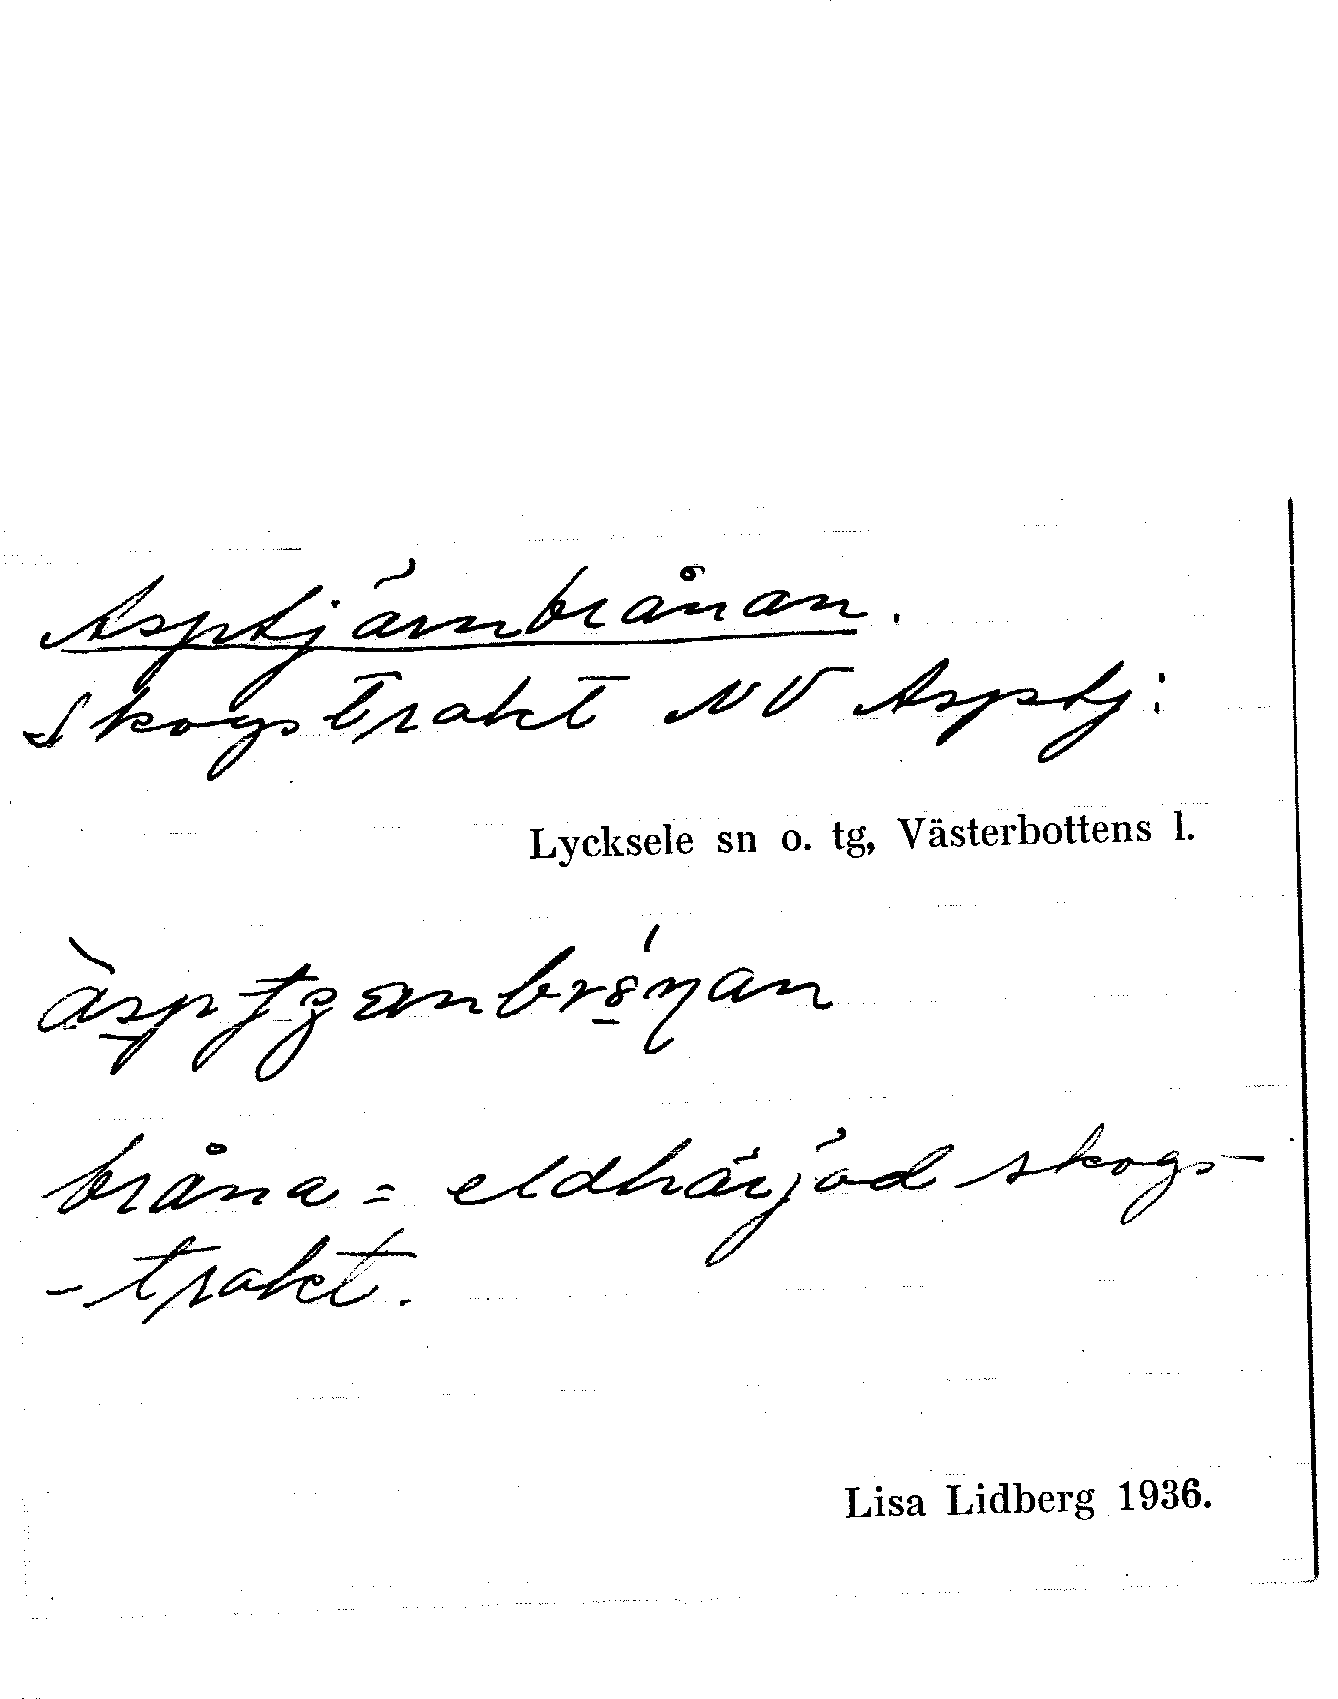 Asptjärnbrånan.
Skogstrakt NV Asptj:
Lycksele sn o. tg, Västerbottens l.
bråna = eldhärjad skogs-
-trakt.
Lisa Lidberg 1936.